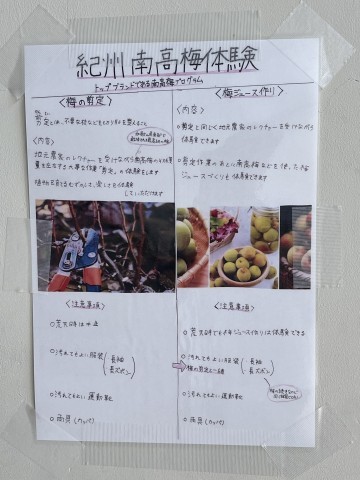 紀州南高梅体験
トップブランドである南高梅プログラム
＜梅の剪定＞
剪定とは、不要な枝などをとり形を整えること
＜内容＞
地元農家のレクチャーを受けながら南高梅の
大事な作業「剪定」の体験をします
していただけます
＜注意事項＞
○荒天時は中止
○汚れてもよい服装（長袖 長ズボン）
○汚れてもよい運動靴
○雨具(カッパ)
＜梅ジュース作り＞
＜内容＞
○剪定と同じく地元農家のレクチャーを受けながら
体験できます
○剪定作業のあとに南高梅などを使った梅
ジュースづくりも体験できます
＜注意事項＞
○荒天時でも梅ジュース作りは体験できる
○汚れてもよい服装（長袖 長ズボン）
○汚れてもよい運動靴
○雨具(カッパ)